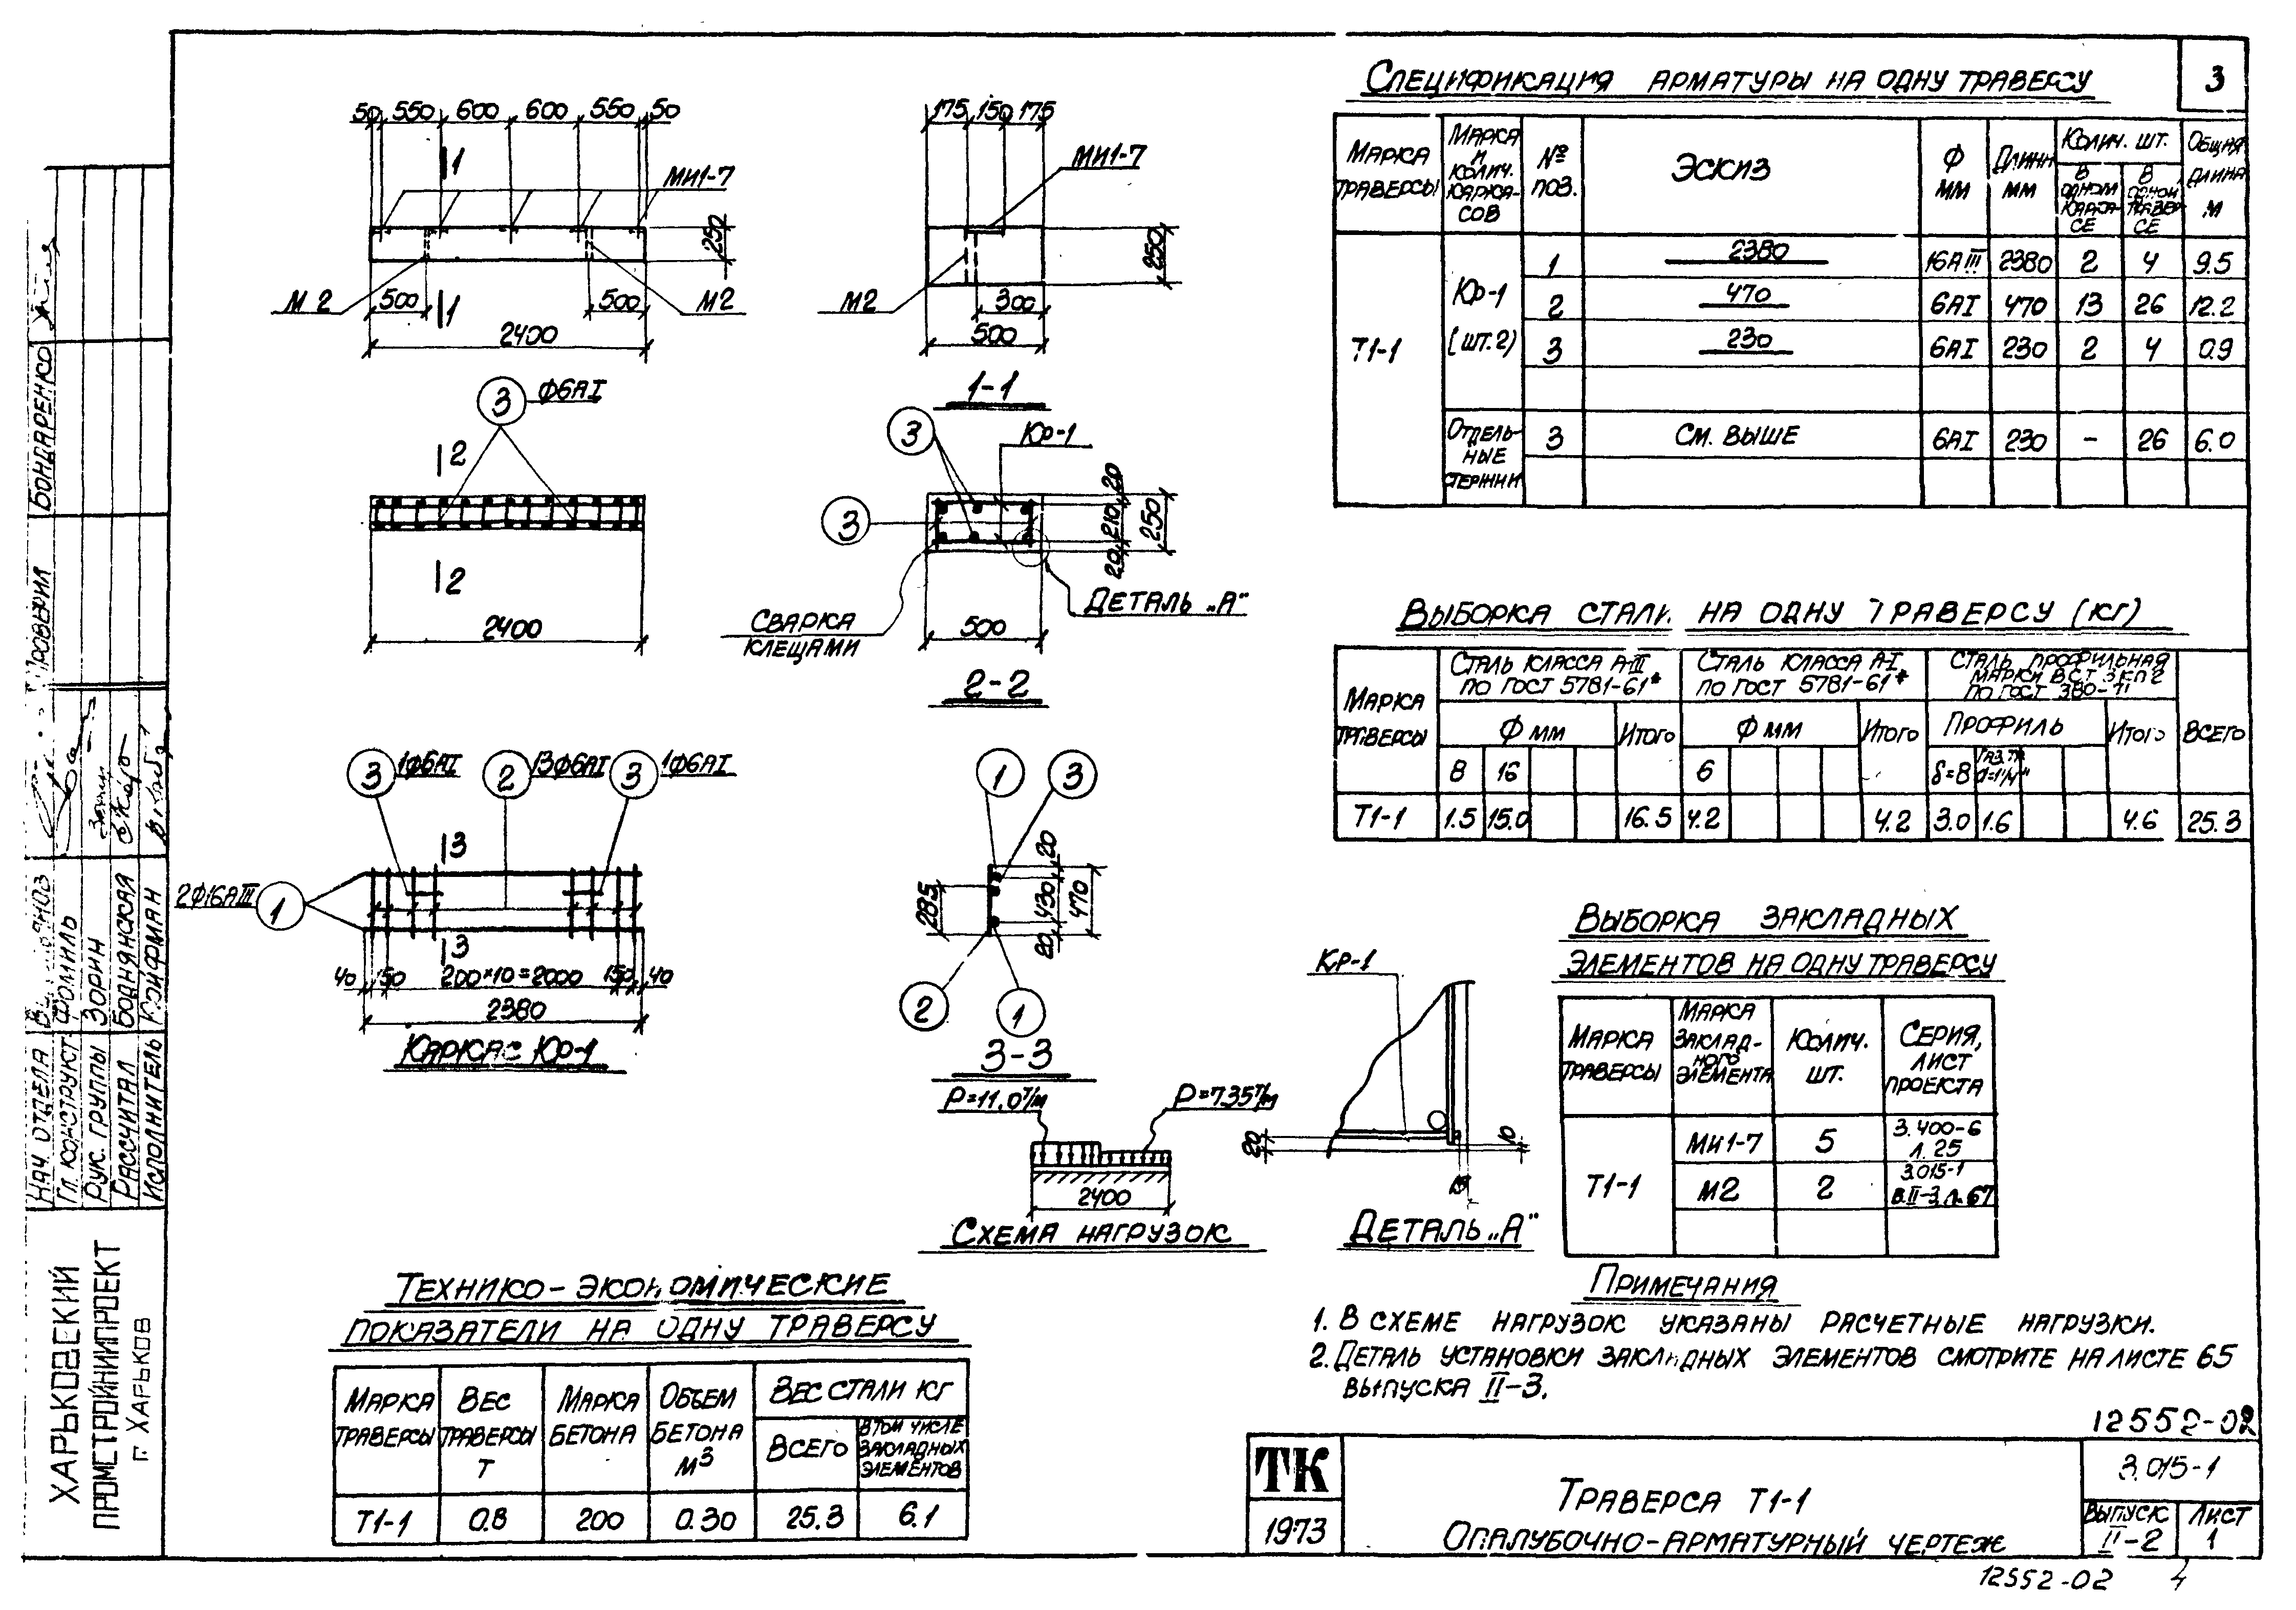 3
Спецификация арматуры на одну траверсу
Марка траверсы
Марка и колич. каркасов
№ поз.
Эскиз
Ф мм
Длина мм
Колич. шт.
в одном каркасе
в одной траверсе
Общая длина м
Т1-1
Кр-1 (шт.2)
1 2380 16АIII 2380 2 4 9.5
2 470 6АI 470 13 26 12.2
3 230 6АI 230 2 4 0.9
Отдельные стержни
3 см. выше 6АI 230 - 26 6.0
50 550 600 600 550 50
1
МИ1-7
250
М2
500
1
500
М2
2400
175 150 175
МИ1-7
250
М2
300
500
1-1
3 Ф6АI
2
2
2400
3
Кр-1
3
20
210
20
250
Деталь „А"
Сварка клещами
500
2-2
Выборка стали на одну траверсу (кг)
Марка траверсы
Сталь класса А-III по ГОСТ 5781-61*
Сталь класса А-I по ГОСТ 5781-61*
Сталь профильная марки ВСт3кп2 по ГОСТ 380-71
Всего
Ф мм Итого Ф мм Итого Профиль Итого
8 16 6 δ=8
Т1-1 1.5 15.0 16.5 4.2 4.2 3.0 1.6 4.6 25.3
3 1Ф6АI
2 13Ф6АI
3 1Ф6АI
2Ф16АIII 1
3
3
40 150 200×10=2000 150 40
2380
Каркас Кр-1
1 3
285
20
430
20
470
2 1
3-3
Р=11.0т/м
Р=7.35т/м
2400
Схема нагрузок
Кр-1
20
10
Деталь „А"
Выборка закладных
элементов на одну траверсу
Марка траверсы
Марка закладного элемента
Колич. шт.
Серия, лист проекта
Т1-1
МИ1-7 5 3.400-6 л. 25
М2 2 3.015-1 в.II-3 л.67
Технико-экономические
показатели на одну траверсу
Марка траверсы
Вес траверсы т
Марка бетона
Объем бетона м3
Вес стали кг
Всего
в том числе закладных элементов
Т1-1 0.8 200 0.30 25.3 6.1
Примечания
1. В схеме нагрузок указаны расчетные нагрузки.
2. Деталь установки закладных элементов смотрите на листе 65
выпуска II-3.
12552-02
ТК
1973
Траверса Т1-1
Опалубочно-арматурный чертеж
3.015-1
Выпуск II-2
Лист 1
12552-02 4
Харьковский
Промстройниипроект
г. Харьков
Нач. отдела
Гл. конструкт. Фомиль
Рук. группы Зорин
Рассчитал Боднянская
Исполнитель Койфман
Проверил Бондаренко